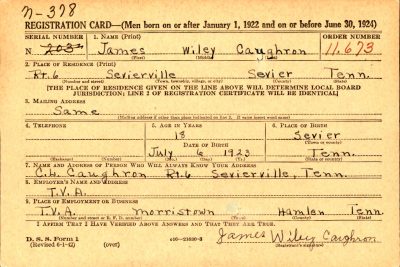 N-378
REGISTRATION CARD—(Men born on or after January 1, 1922 and on or before June 30, 1924)
SERIAL NUMBER 1. NAME (Print) ORDER NUMBER
N 203 James Wiley Caughron 11,673
2. PLACE OF RESIDENCE (Print)
Rt.6 Sevierville Sevier Tenn.
(Number and street) (Town, township, village, or city) (County) (State)
[THE PLACE OF RESIDENCE GIVEN ON THE LINE ABOVE WILL DETERMINE LOCAL BOARD
JURISDICTION; LINE 2 OF REGISTRATION CERTIFICATE WILL BE IDENTICAL]
3. MAILING ADDRESS
Same
(Mailing address if other than place indicated on line 2. If same insert word same)
4. TELEPHONE 5. AGE IN YEARS 6. PLACE OF BIRTH
18 Sevier
DATE OF BIRTH (Town or county)
July 6 1923 Tenn.
(Exchange) (Number) (Mo.) (Day) (Yr.) (State or country)
7. NAME AND ADDRESS OF PERSON WHO WILL ALWAYS KNOW YOUR ADDRESS
C.L. Caughron Rt.6 Sevierville, Tenn.
8. EMPLOYER'S NAME AND ADDRESS
T.V.A.
9. PLACE OF EMPLOYMENT OR BUSINESS
T.V.A. Morristown Hamlen Tenn.
(Number and street or R. F. D. number) (Town) (County) (State)
I AFFIRM THAT I HAVE VERIFIED ABOVE ANSWERS AND THAT THEY ARE TRUE.
James Wiley Caughron
D. S. S. Form 1
(Revised 6-1-42) (over) (Registrant's signature)